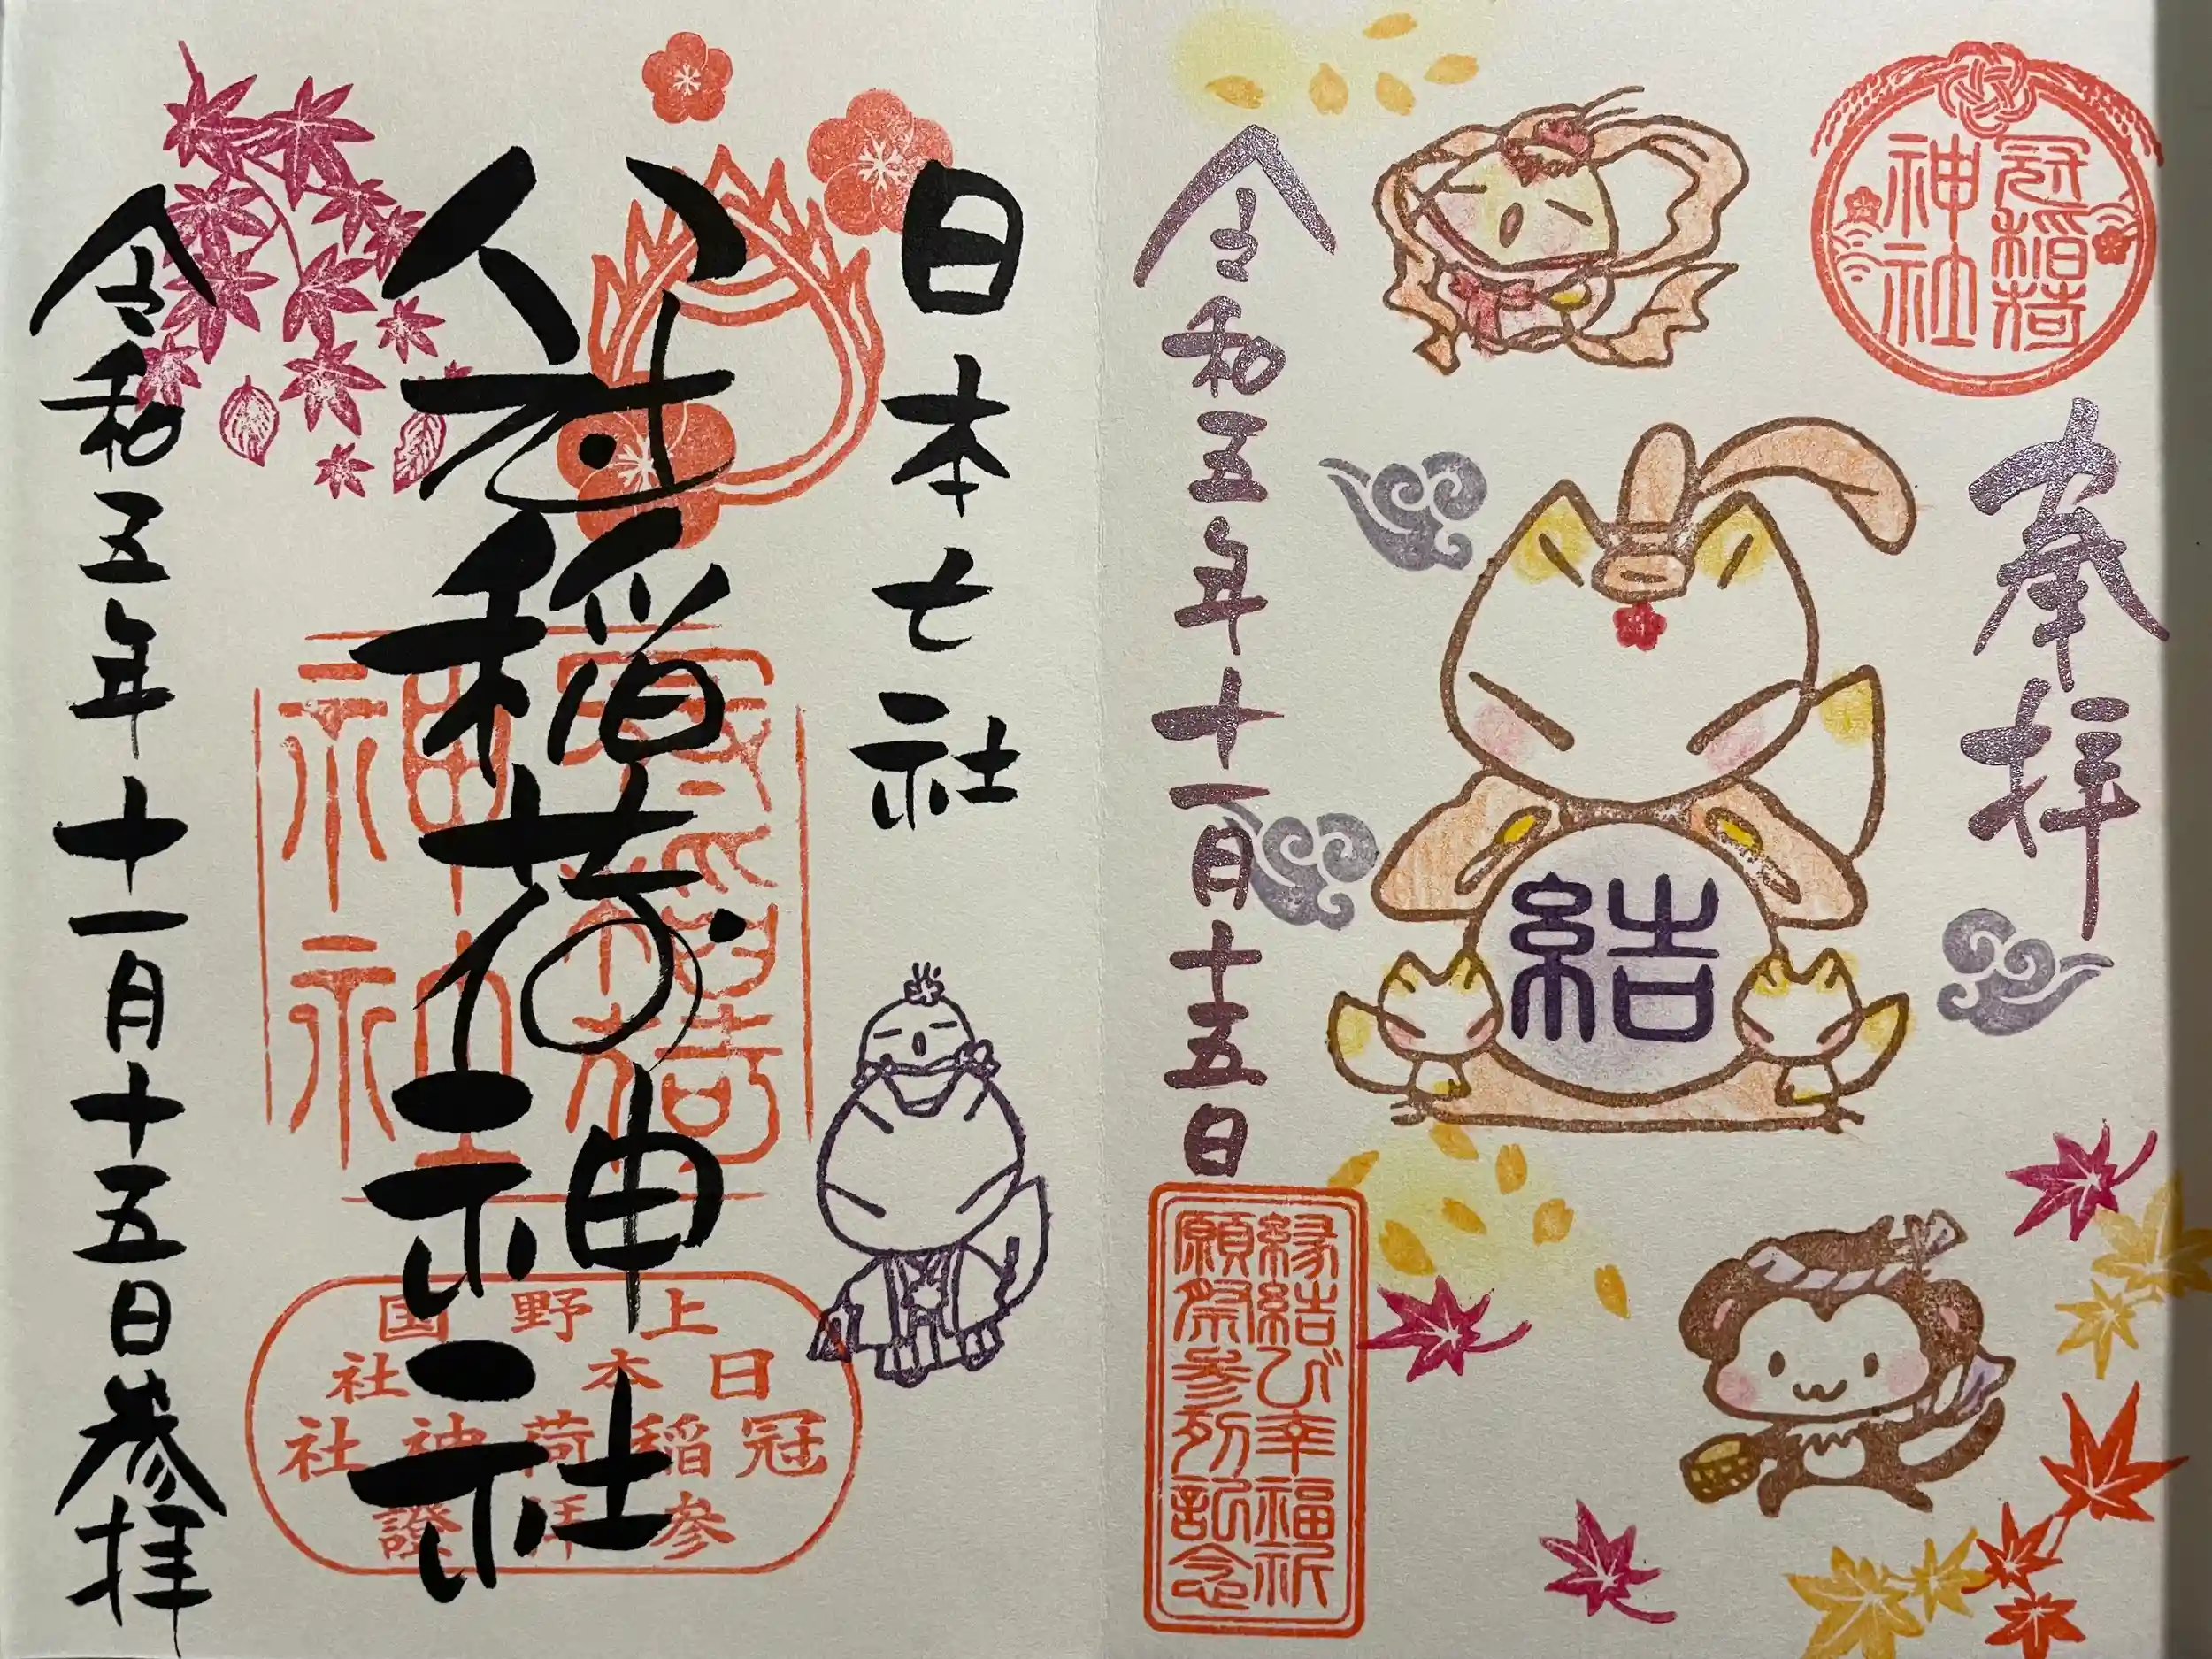 冠稲荷
神社
奉拝
結
令和五年十一月十五日
縁結び幸福祈
願祭参列記念
日本七社
冠稲荷神社
冠稲荷
神社
上野国
日本七社
冠稲荷神社
参拝證
令和五年十一月十五日参拝